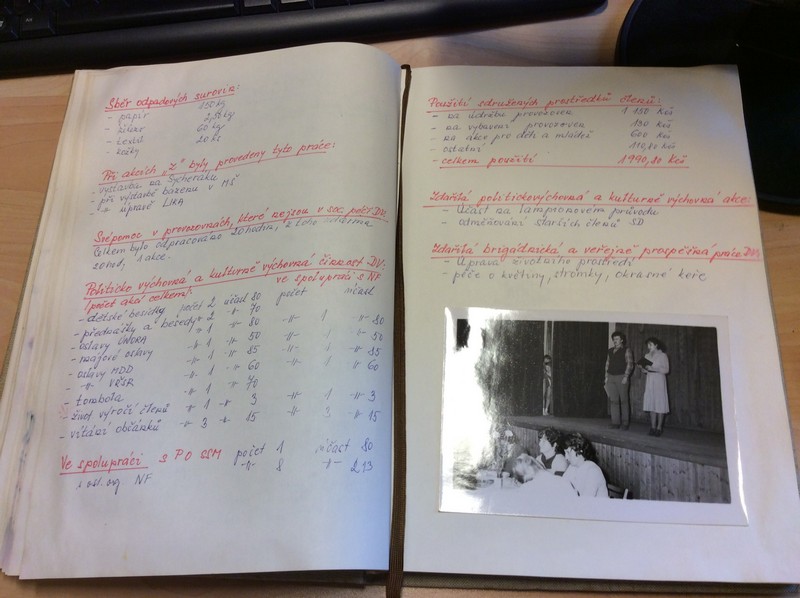 Sběr odpadových surovin:
- papír 150 kg
- železo 60 kg
- textil 20 kg
- kožky
Při akcích „Z" byly provedeny tyto práce:
- výstavba na Sychráku
- při výstavbě bazénu v MŠ
- -"- úpravě LIKA
Svépomoc v provozovnách, které nejsou v soc. péči DV:
Celkem bylo odpracováno 20 hodin, z toho zdarma
20 hod, 1 akce.
Politicko výchovná a kulturně výchovná činnost DV:
počet akcí celkem: ve spolupráci s NF
počet účast
- dětské besídky počet 2 účast 80
- přednášky a besedy -"- 2 -"- 70
- oslavy ÚNORA -"- 1 -"- 80 -"- 1 -"- 80
- májové oslavy -"- 1 -"- 50 -"- 1 -"- 50
- oslavy MDD -"- 1 -"- 85 -"- 1 -"- 85
- -"- VŘSR -"- 1 -"- 60 -"- 1 -"- 60
- tombola -"- 1 -"- 70
- život. výročí členů -"- 1 -"- 3 -"- 1 -"- 3
- vítání občánků -"- 3 -"- 15 -"- 3 -"- 15
Ve spolupráci s PO SSM počet 1 účast 80
s ost. org NF -"- 8 -"- 213
Použití sdružených prostředků členů:
- na údržbu provozoven 1 150 Kčs
- na vybavení provozoven 130 Kčs
- na akce pro děti a mládež 600 Kčs
- ostatní 110,80 Kčs
- celkem použití 1990,80 Kčs
Zdařilá politickovýchovná a kulturně výchovná akce:
- Účast na lampionovém průvodu
- odměňování starších členů SD
Zdařilá brigádnická a veřejně prospěšná práce DV:
- Úprava životního prostředí
- péče o květiny, stromky, okrasné keře